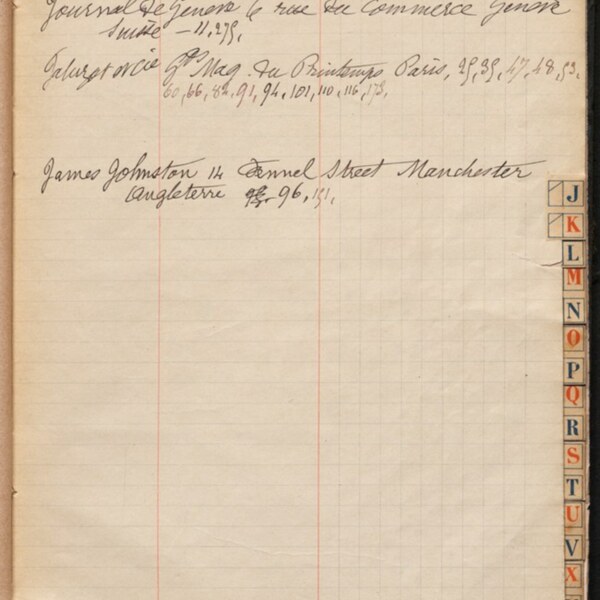 Journal de Genève 6 rue du Commerce Genève
Suisse – 11, 275,
Jaluzot et Cie Gds Mag. du Printemps Paris, 25, 35, 47, 48, 53,
60, 66, 82, 91, 94, 101, 110, 116, 173,
James Johnston 14 Fennel Street Manchester
Angleterre 96, 151,
J
K
L
M
N
O
P
Q
R
S
T
U
V
X